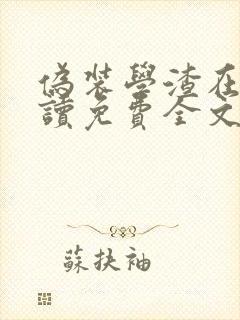 偽裝學渣在
讀免費全文
蘇扶袖